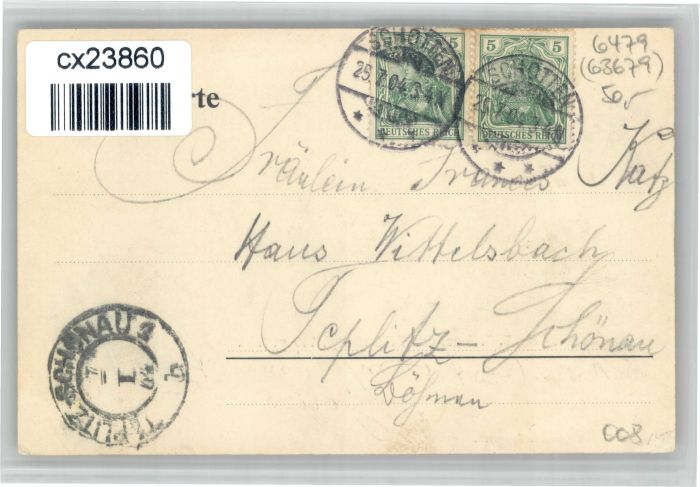 cx23860
rte
5 5
SCHOTTEN
SCHOTTEN
25.7.04.
DEUTSCHES REICH
DEUTSCHES REICH
6479
(63679)
50,-
Fräulein Frances Katz
Haus Wittelsbach
Teplitz-Schönau
Böhmen
TEPLITZ-SCHÖNAU 1
008